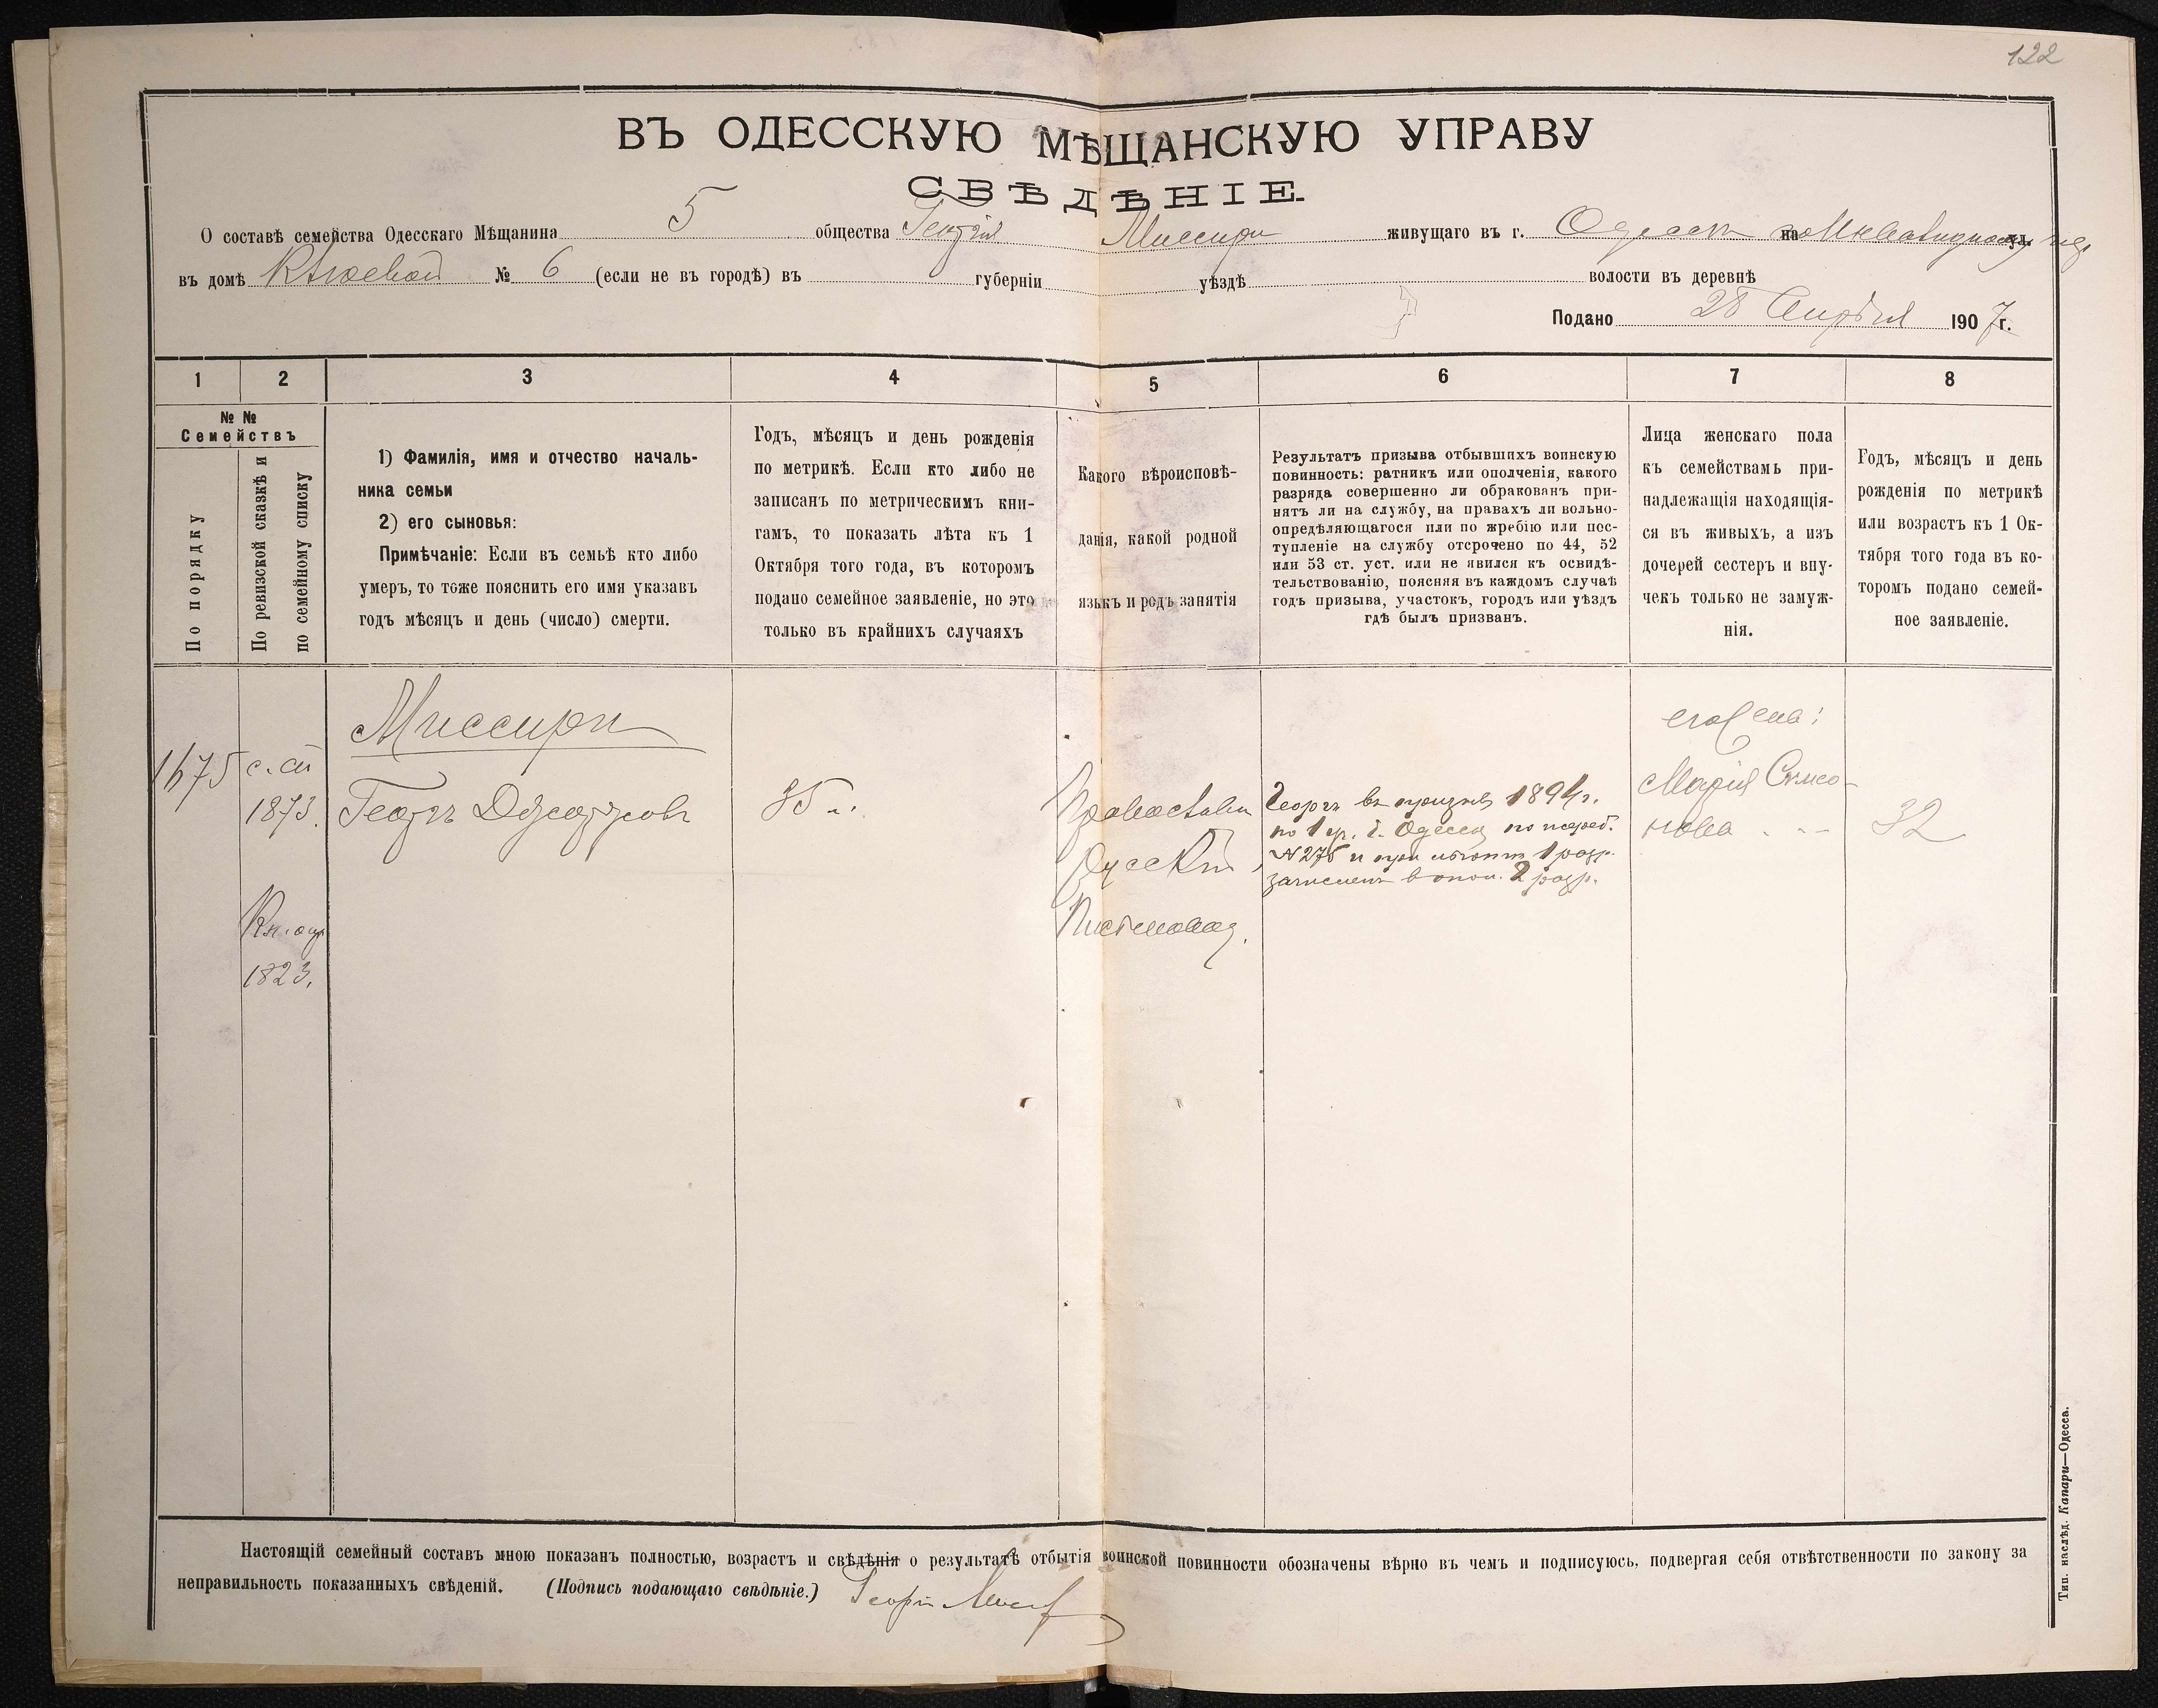 122
ВЪ ОДЕССКУЮ МѢЩАНСКУЮ УПРАВУ
СВѢДѢНІЕ.
О составѣ семейства Одесскаго Мѣщанина 5 общества Георгія Миссири живущаго въ г. Одессѣ на
въ домѣ № 6 (если не въ городѣ) въ губерніи уѣздѣ волости въ деревнѣ
Подано 28 Апрѣля 1907 г.
1 2 3 4 5 6 7 8
№ №
Семействъ
По порядку
По ревизской сказкѣ и
по семейному списку
1) Фамилія, имя и отчество началь-
ника семьи
2) его сыновья:
Примѣчаніе: Если въ семьѣ кто либо
умеръ, то тоже пояснить его имя указавъ
годъ мѣсяцъ и день (число) смерти.
Годъ, мѣсяцъ и день рожденія
по метрикѣ. Если кто либо не
записанъ по метрическимъ кни-
гамъ, то показать лѣта къ 1
Октября того года, въ которомъ
подано семейное заявленіе, но это
только въ крайнихъ случаяхъ
Какого вѣроисповѣ-
данія, какой родной
языкъ и родъ занятія
Результатъ призыва отбывшихъ воинскую
повинность: ратникъ или ополченія, какого
разряда совершенно ли обракованъ при-
нятъ ли на службу, на правахъ ли вольно-
опредѣляющагося или по жребію или пос-
тупленіе на службу отсрочено по 44, 52
или 53 ст. уст. или не явился къ освидѣ-
тельствованію, поясняя въ каждомъ случаѣ
годъ призыва, участокъ, городъ или уѣздъ
гдѣ былъ призванъ.
Лица женскаго пола
къ семействамъ при-
надлежащія находящія-
ся въ живыхъ, а изъ
дочерей сестеръ и вну-
чекъ только не замуж-
нія.
Годъ, мѣсяцъ и день
рожденія по метрикѣ
или возрастъ къ 1 Ок-
тября того года въ ко-
торомъ подано семей-
ное заявленіе.
1675
с. сп
1873.
Кн. окр
1823.
Миссири
Георгъ
35 л.
Православн
Русскій,
Письмовод.
Георгъ въ призывѣ 1894 г.
по 1 уч. г. Одессы по жереб.
№ 275 и при льготѣ 1 разр.
зачисленъ в опол. 2 разр.
его жена:
Марія Симо-
нова - - -
32
Настоящій семейный составъ мною показанъ полностью, возрастъ и свѣдѣнія о результатѣ отбытія воинской повинности обозначены вѣрно въ чемъ и подписуюсь, подвергая себя отвѣтственности по закону за
неправильность показанныхъ свѣденій. (Подпись подающаго свѣдѣніе.) Георгій
Тип. наслѣд. Капари—Одесса.